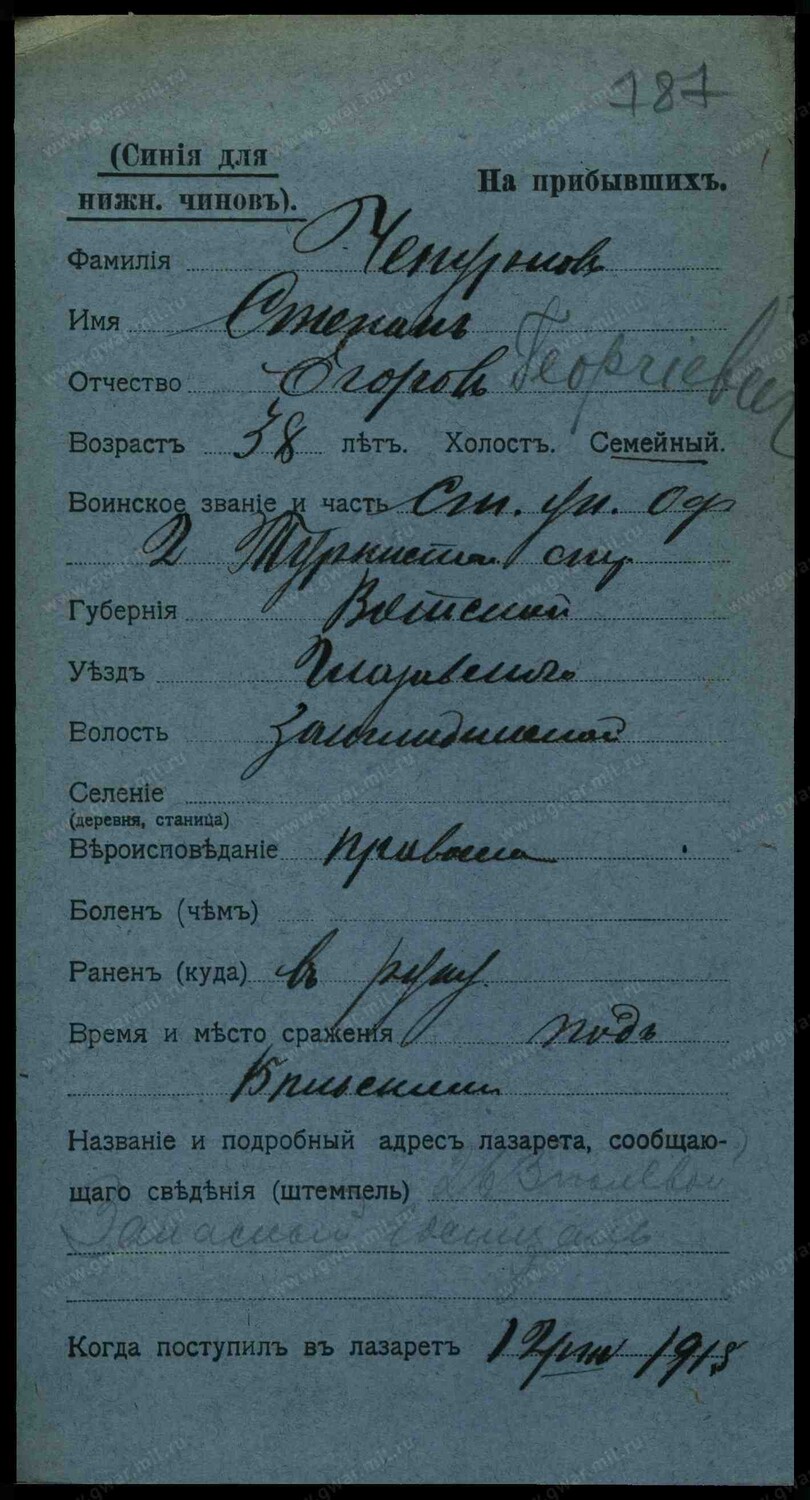 787
(Синія для
нижн. чиновъ).
На прибывшихъ.
Фамилія Чепурновъ
Имя Степанъ
Отчество Егоровъ Георгіевич
Возрастъ 38 лѣтъ. Холостъ. Семейный.
Воинское званіе и часть Ст. ун. Оф
2 Туркистан стр
Губернія Вятской
Уѣздъ Глазовского
Волость
Селеніе
(деревня, станица)
Вѣроисповѣданіе правосла
Боленъ (чѣмъ)
Раненъ (куда) въ руку
Время и мѣсто сраженія подъ
Названіе и подробный адресъ лазарета, сообщаю-
щаго свѣдѣнія (штемпель) полевой
Запасный Госпиталь
Когда поступилъ въ лазаретъ 1915